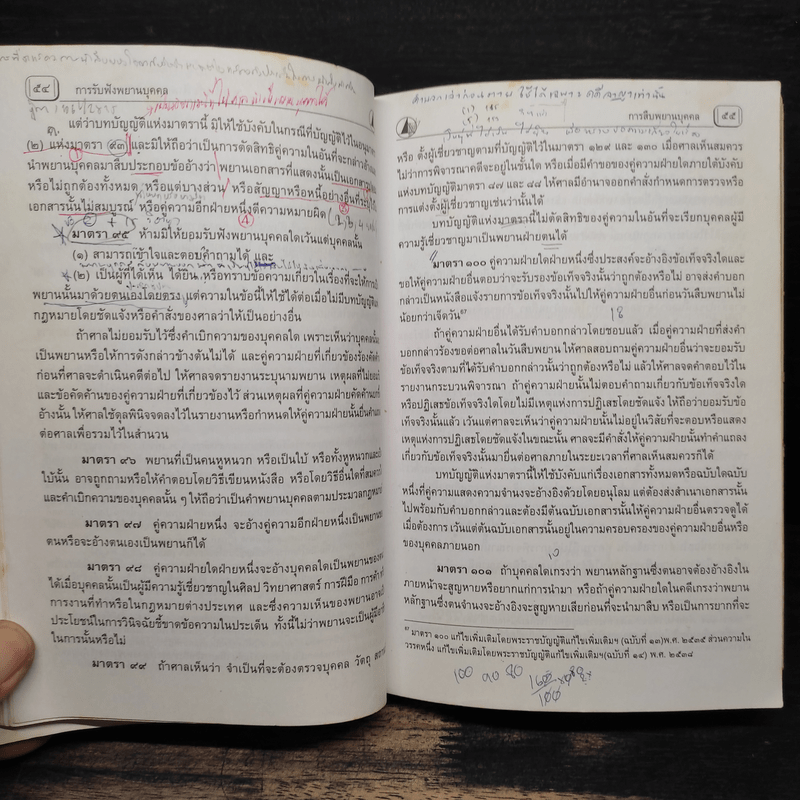 ๕๔ การรับฟังพยานบุคคล
แต่ว่าบทบัญญัติแห่งมาตรานี้ มิให้ใช้บังคับในกรณีที่บัญญัติไว้ในอนุมาตรา
(๒) แห่งมาตรา ๙๓ และมิให้ถือว่าเป็นการตัดสิทธิคู่ความในอันที่จะกล่าวอ้างและ
นำพยานบุคคลมาสืบประกอบข้ออ้างว่า พยานเอกสารที่แสดงนั้นเป็นเอกสารปลอม
หรือไม่ถูกต้องทั้งหมด หรือแต่บางส่วน หรือสัญญาหรือหนี้อย่างอื่นที่ระบุไว้ใน
เอกสารนั้นไม่สมบูรณ์ หรือคู่ความอีกฝ่ายหนึ่งตีความหมายผิด
มาตรา ๙๕ ห้ามมิให้ยอมรับฟังพยานบุคคลใดเว้นแต่บุคคลนั้น
(๑) สามารถเข้าใจและตอบคำถามได้ และ
(๒) เป็นผู้ที่ได้เห็น ได้ยิน หรือทราบข้อความเกี่ยวในเรื่องที่จะให้การเป็น
พยานนั้นมาด้วยตนเองโดยตรง แต่ความในข้อนี้ให้ใช้ได้ต่อเมื่อไม่มีบทบัญญัติแห่ง
กฎหมายโดยชัดแจ้งหรือคำสั่งของศาลว่าให้เป็นอย่างอื่น
ถ้าศาลไม่ยอมรับไว้ซึ่งคำเบิกความของบุคคลใด เพราะเห็นว่าบุคคลนั้น
เป็นพยานหรือให้การดังกล่าวข้างต้นไม่ได้ และคู่ความฝ่ายที่เกี่ยวข้องร้องคัดค้าน
ก่อนที่ศาลจะดำเนินคดีต่อไป ให้ศาลจดรายงานระบุนามพยาน เหตุผลที่ไม่ยอมรับ
และข้อคัดค้านของคู่ความฝ่ายที่เกี่ยวข้องไว้ ส่วนเหตุผลที่คู่ความฝ่ายคัดค้านยกขึ้น
อ้างนั้น ให้ศาลใช้ดุลพินิจจดลงไว้ในรายงานหรือกำหนดให้คู่ความฝ่ายนั้นยื่นคำแถลง
ต่อศาลเพื่อรวมไว้ในสำนวน
มาตรา ๙๖ พยานที่เป็นคนหูหนวก หรือเป็นใบ้ หรือทั้งหูหนวกและเป็น
ใบ้นั้น อาจถูกถามหรือให้คำตอบโดยวิธีเขียนหนังสือ หรือโดยวิธีอื่นใดที่สมควรได้
และคำเบิกความของบุคคลนั้น ๆ ให้ถือว่าเป็นคำพยานบุคคลตามประมวลกฎหมายนี้
มาตรา ๙๗ คู่ความฝ่ายหนึ่ง จะอ้างคู่ความอีกฝ่ายหนึ่งเป็นพยานของ
ตนหรือจะอ้างตนเองเป็นพยานก็ได้
มาตรา ๙๘ คู่ความฝ่ายใดฝ่ายหนึ่งจะอ้างบุคคลใดเป็นพยานของตน
ได้เมื่อบุคคลนั้นเป็นผู้มีความรู้เชี่ยวชาญในศิลป วิทยาศาสตร์ การฝีมือ การค้า หรือ
การงานที่ทำหรือในกฎหมายต่างประเทศ และซึ่งความเห็นของพยานอาจเป็น
ประโยชน์ในการวินิจฉัยชี้ขาดข้อความในประเด็น ทั้งนี้ไม่ว่าพยานจะเป็นผู้มีอาชีพ
ในการนั้นหรือไม่
มาตรา ๙๙ ถ้าศาลเห็นว่า จำเป็นที่จะต้องตรวจบุคคล วัตถุ สถานที่
การสืบพยานบุคคล ๕๕
หรือ ตั้งผู้เชี่ยวชาญตามที่บัญญัติไว้ในมาตรา ๑๒๙ และ ๑๓๐ เมื่อศาลเห็นสมควร
ไม่ว่าการพิจารณาคดีจะอยู่ในชั้นใด หรือเมื่อมีคำขอของคู่ความฝ่ายใดภายใต้บังคับ
แห่งบทบัญญัติมาตรา ๘๗ และ ๘๘ ให้ศาลมีอำนาจออกคำสั่งกำหนดการตรวจหรือ
การแต่งตั้งผู้เชี่ยวชาญเช่นว่านั้นได้
บทบัญญัติแห่งมาตรานี้ไม่ตัดสิทธิของคู่ความในอันที่จะเรียกบุคคลผู้มี
ความรู้เชี่ยวชาญมาเป็นพยานฝ่ายตนได้
มาตรา ๑๐๐ คู่ความฝ่ายใดฝ่ายหนึ่งซึ่งประสงค์จะอ้างอิงข้อเท็จจริงใดและ
ขอให้คู่ความฝ่ายอื่นตอบว่าจะรับรองข้อเท็จจริงนั้นว่าถูกต้องหรือไม่ อาจส่งคำบอก
กล่าวเป็นหนังสือแจ้งรายการข้อเท็จจริงนั้นไปให้คู่ความฝ่ายอื่นก่อนวันสืบพยานไม่
น้อยกว่าเจ็ดวัน
ถ้าคู่ความฝ่ายอื่นได้รับคำบอกกล่าวโดยชอบแล้ว เมื่อคู่ความฝ่ายที่ส่งคำ
บอกกล่าวร้องขอต่อศาลในวันสืบพยาน ให้ศาลสอบถามคู่ความฝ่ายอื่นว่าจะยอมรับ
ข้อเท็จจริงตามที่ได้รับคำบอกกล่าวนั้นว่าถูกต้องหรือไม่ แล้วให้ศาลจดคำตอบไว้ใน
รายงานกระบวนพิจารณา ถ้าคู่ความฝ่ายนั้นไม่ตอบคำถามเกี่ยวกับข้อเท็จจริงใด
หรือปฏิเสธข้อเท็จจริงใดโดยไม่มีเหตุแห่งการปฏิเสธโดยชัดแจ้ง ให้ถือว่ายอมรับข้อ
เท็จจริงนั้นแล้ว เว้นแต่ศาลจะเห็นว่าคู่ความฝ่ายนั้นไม่อยู่ในวิสัยที่จะตอบหรือแสดง
เหตุแห่งการปฏิเสธโดยชัดแจ้งในขณะนั้น ศาลจะมีคำสั่งให้คู่ความฝ่ายนั้นทำคำแถลง
เกี่ยวกับข้อเท็จจริงนั้นมายื่นต่อศาลภายในระยะเวลาที่ศาลเห็นสมควรก็ได้
บทบัญญัติแห่งมาตรานี้ให้ใช้บังคับแก่เรื่องเอกสารทั้งหมดหรือฉบับใดฉบับ
หนึ่งที่คู่ความแสดงความจำนงจะอ้างอิงด้วยโดยอนุโลม แต่ต้องส่งสำเนาเอกสารนั้น
ไปพร้อมกับคำบอกกล่าวและต้องมีต้นฉบับเอกสารนั้นให้คู่ความฝ่ายอื่นตรวจดูได้
เมื่อต้องการ เว้นแต่ต้นฉบับเอกสารนั้นอยู่ในความครอบครองของคู่ความฝ่ายอื่นหรือ
ของบุคคลภายนอก
มาตรา ๑๐๑ ถ้าบุคคลใดเกรงว่า พยานหลักฐานซึ่งตนอาจต้องอ้างอิงใน
ภายหน้าจะสูญหายหรือยากแก่การนำมา หรือถ้าคู่ความฝ่ายใดในคดีเกรงว่าพยาน
หลักฐานซึ่งตนจำนงจะอ้างอิงจะสูญหายเสียก่อนที่จะนำมาสืบ หรือเป็นการยากที่จะ
มาตรา ๑๐๐ แก้ไขเพิ่มเติมโดยพระราชบัญญัติแก้ไขเพิ่มเติมฯ (ฉบับที่ ๑๓)พ.ศ. ๒๕๓๕ ส่วนความใน
วรรคหนึ่ง แก้ไขเพิ่มเติมโดยพระราชบัญญัติแก้ไขเพิ่มเติมฯ(ฉบับที่ ๑๔) พ.ศ. ๒๕๓๘
100 90 80